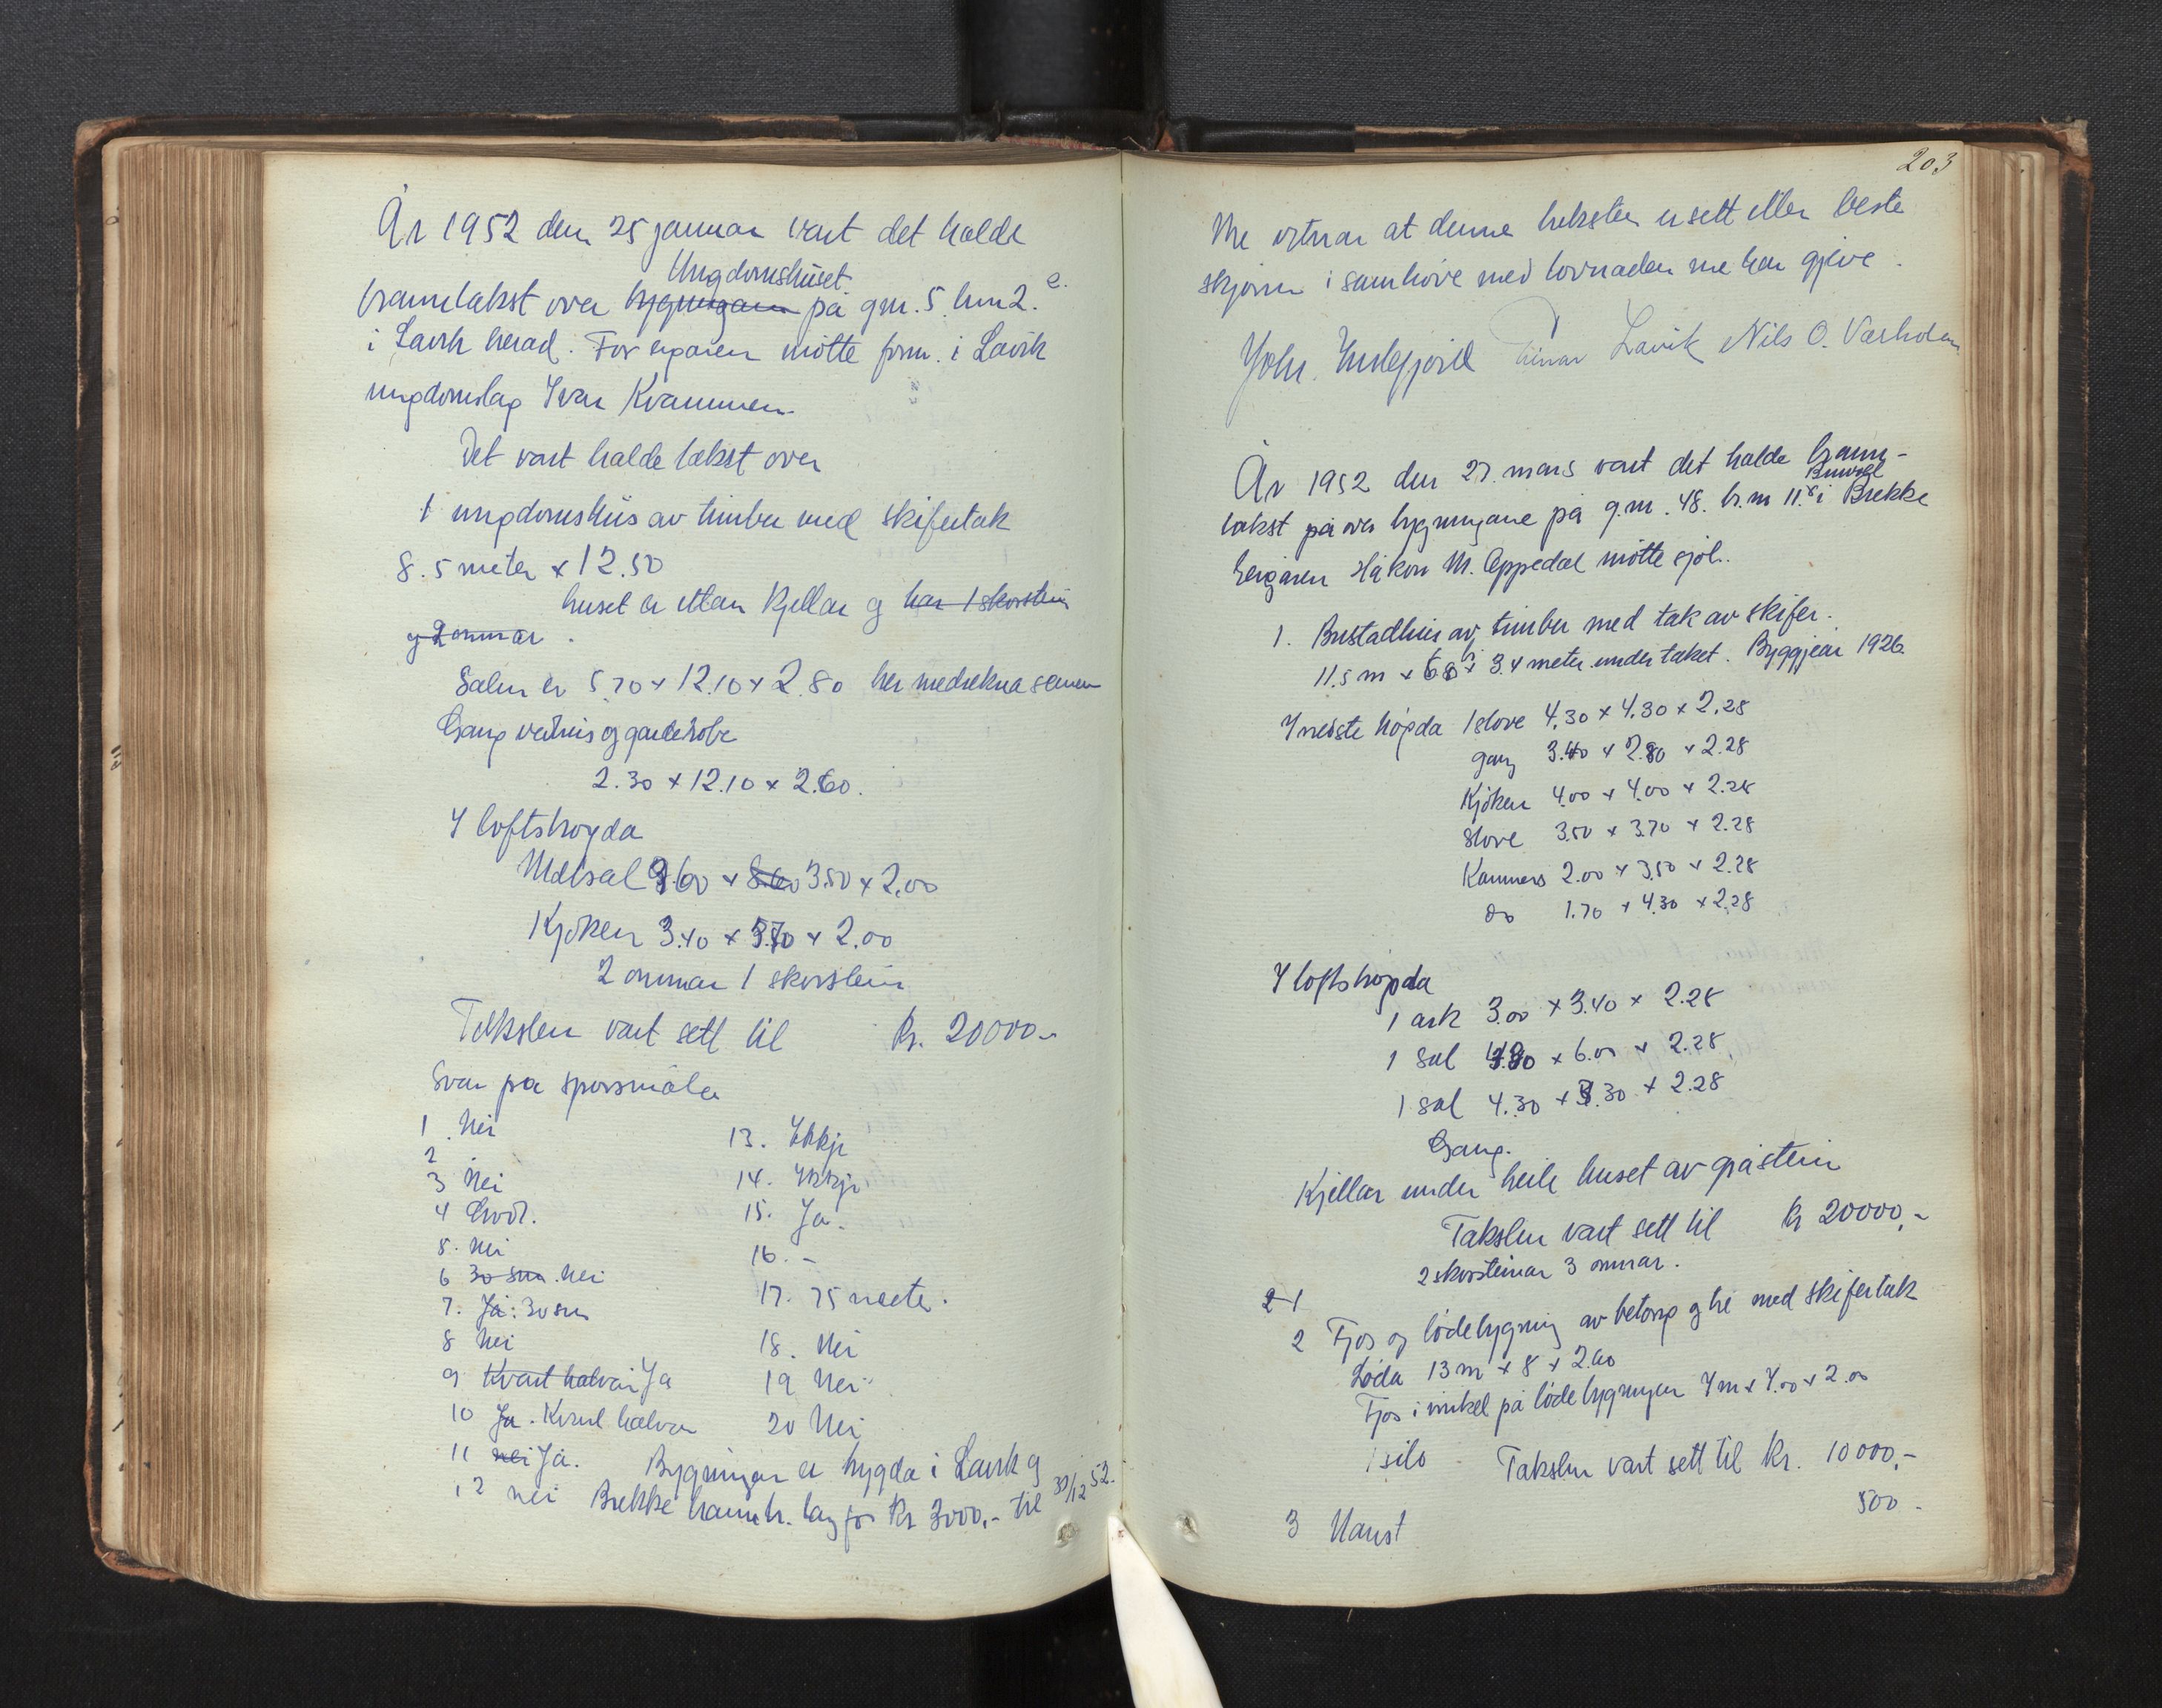 År 1952 den 25 januar vart det halde
Ungdomshuset
branntakst over bygningane på gnr. 5. bnr 2. e.
i Lavik herad. For eigaren møtte form. i Lavik
ungdomslag Ivar Kvammen.
Det vart halde takst over
1 ungdomshus av timber med skifertak
8.5 meter x 12.50
huset er uttan kjellar og har 1 skorstein
og 2 omnar.
Salen er 5.70 x 12.10 x 2.80 her medrekna scenen
Gang vedhus og garderobe
2.30 x 12.10 x 2.60.
I loftshøgda
Matsal 9.60 x 8.60 3.50 x 2.00
Kjøken 3.40 x 3.70 x 2.00
2 omnar 1 skorstein
Taksten vart sett til Kr. 20000.-
Svar på spørsmåla
1. Nei
2
3 Nei
4 God.
5. Nei
6 30 sm. Nei
7. Ja: 30 sm
8 Nei
9 Kvart halvår Ja
10 Ja. Kvart halvår
11 nei Ja.
12 nei
13. Ikkje
14. Ikkje
15. Ja.
16. -
17. 75 meter.
18. Nei
19 Nei
20 Nei
Bygningen er trygda i Lavik og
Brekke branntr. lag for Kr 3000,- til 30/12 52.
203
Me vitnar at denne taksten er sett etter beste
skjønn i samhøve med lovnaden me har gjeve.
John Indregjerd Einar Lavik Nils O. Værholm
År 1952 den 27. mars vart det halde brann-
takst på over bygningane på g.nr. 48. br.nr 11. i Brekke
Eigaren Håkon M. Oppedal møtte sjøl.
1. Bustadhus av timber med tak av skifer.
11.5 m x 6.8 x 3.4 meter under taket. Byggjeår 1926.
I nedste høgda 1 stove 4.30 x 4.30 x 2.28
gang 3.40 x 2.80 x 2.28
Kjøken 4.00 x 4.00 x 2.28
Stove 3.50 x 3.70 x 2.28
Kammers 2.00 x 3.50 x 2.28
do 1.70 x 4.30 x 2.28
I loftshøgda
1 ark 3.00 x 3.40 x 2.28
1 Sal x 6.00 x 2.28
1 sal 4.30 x 3.30 x 2.28
Gang.
Kjellar under heile huset av gråstein
Taksten vart sett til Kr 20000,-
2 skorsteinar 3 omnar.
2 1
2 Fjos og lødebygning av betong og tre med skifertak
Løda 13 m x 8 x 2.60
Fjos i vinkel på lødebygningen 4 m x 4.00 x 2.00
1 silo Taksten vart sett til Kr. 10000,-
3 Naust 500.-